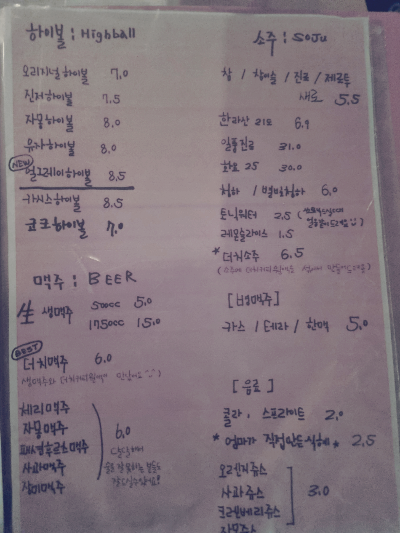 하이볼 : Highball
오리지널하이볼 7.0
진저하이볼 7.5
자몽하이볼 8.0
유자하이볼 8.0
NEW
얼그레이하이볼 8.5
카시스하이볼 8.5
쿄쿄하이볼 7.0
맥주 : BEER
生 생맥주 500cc 5.0
1750cc 15.0
BEST
더치맥주 6.0
체리맥주
자몽맥주
패션후르츠맥주
사과맥주
장미맥주
6.0
소주 : SOJU
참 / 참이슬 / 진로 / 제로투
새로 5.5
한라산 21도 6.9
일품진로 31.0
화요 25 30.0
청하 / 별빛청하 6.0
토닉워터 2.5
레몬슬라이스 1.5
* 더치소주 6.5
[병맥주]
카스 / 테라 / 한맥 5.0
[음료]
콜라 . 스프라이트 2.0
* 엄마가 직접만든식혜 * 2.5
오렌지쥬스
사과쥬스
크랜베리쥬스
3.0